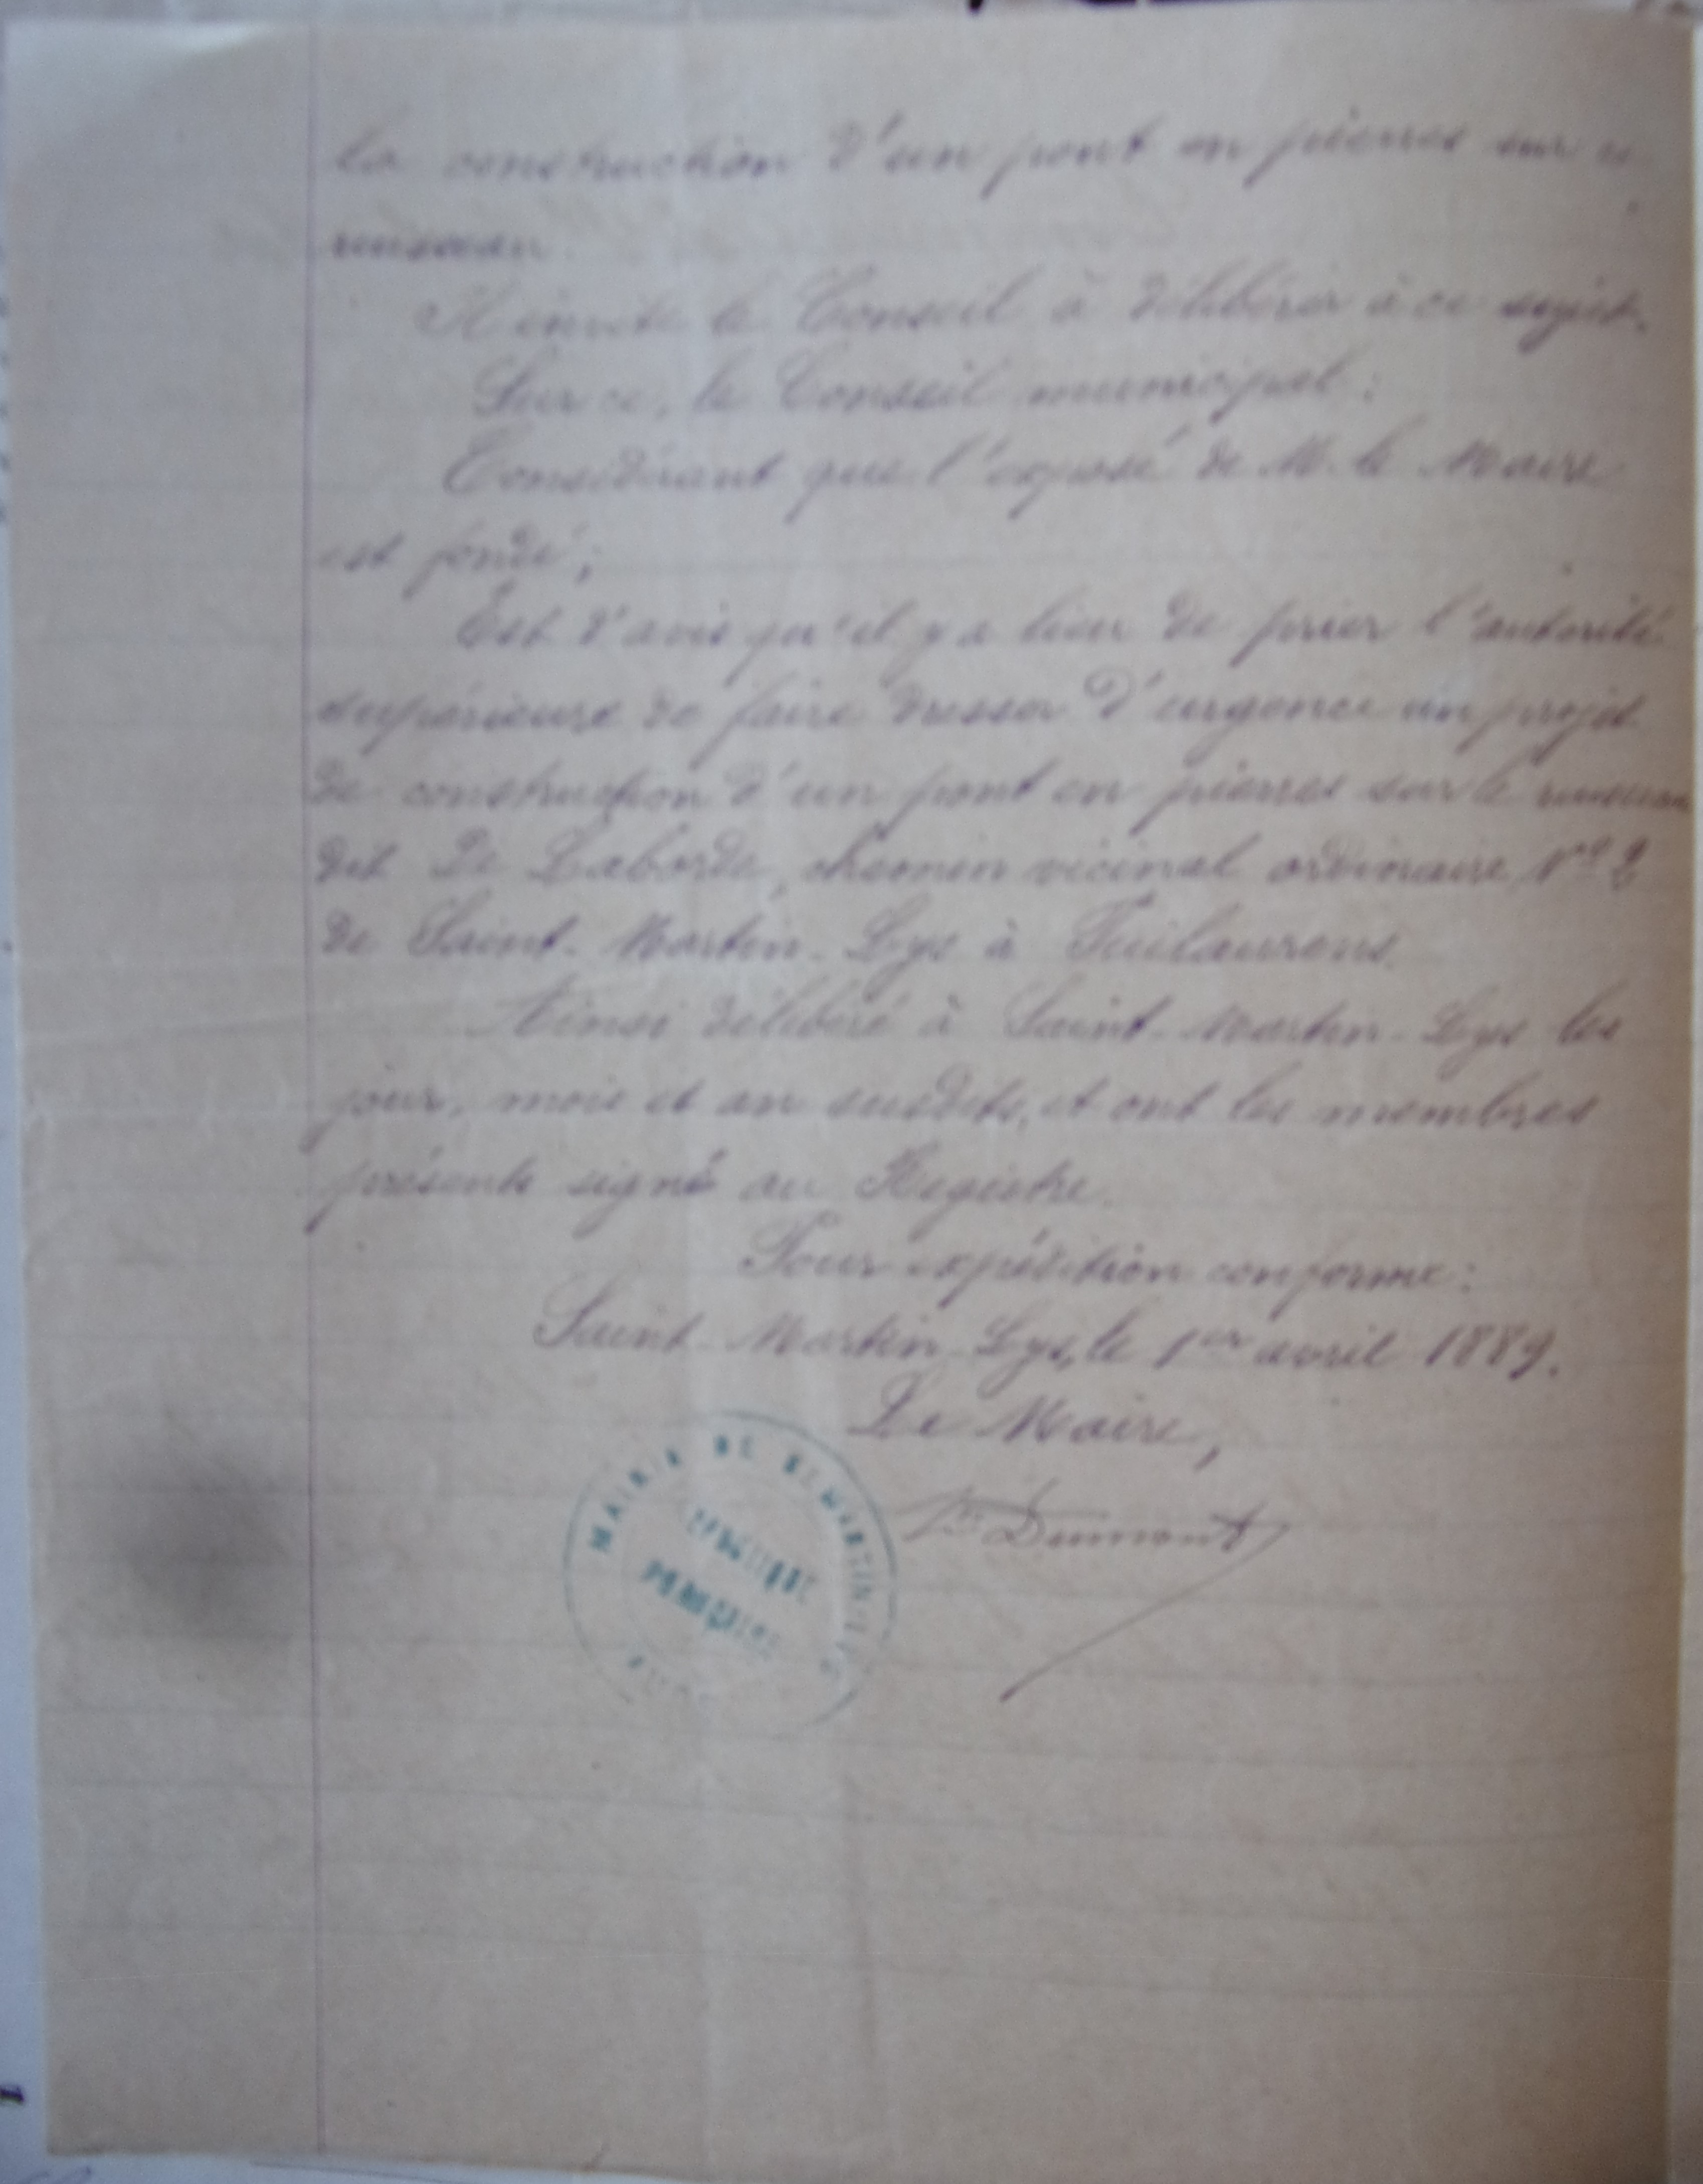 la construction d'un pont en pierres sur ce
ruisseau.
Il invite le Conseil à délibérer à ce sujet.
Sur ce, le Conseil municipal:
Considérant que l'exposé de M. le Maire
est fondé;
Est d'avis qu'il y a lieu de prier l'autorité
supérieure de faire dresser d'urgence un projet
de construction d'un pont en pierres sur le ruisseau
dit De Laborde, chemin vicinal ordinaire, Nº 2
de Saint-Martin-Lys à Puilaurens.
Ainsi délibéré à Saint-Martin-Lys les
jour, mois et an susdits, et ont les membres
présents signé au Registre.
Pour expédition conforme:
Saint-Martin-Lys, le 1er avril 1889.
Le Maire,
Dumont
MAIRIE DE ST MARTIN-LYS
REPUBLIQUE
FRANÇAISE
AUDE